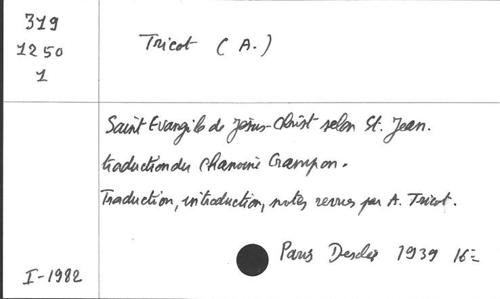 319
1250
1
Tricot (A.)
Saint Evangile de Jésus-Christ selon St. Jean.
traduction du Chanoine Crampon.
Traduction, introduction, notes revues par A. Tricot.
Paris Desclée 1939 16=
I-1982